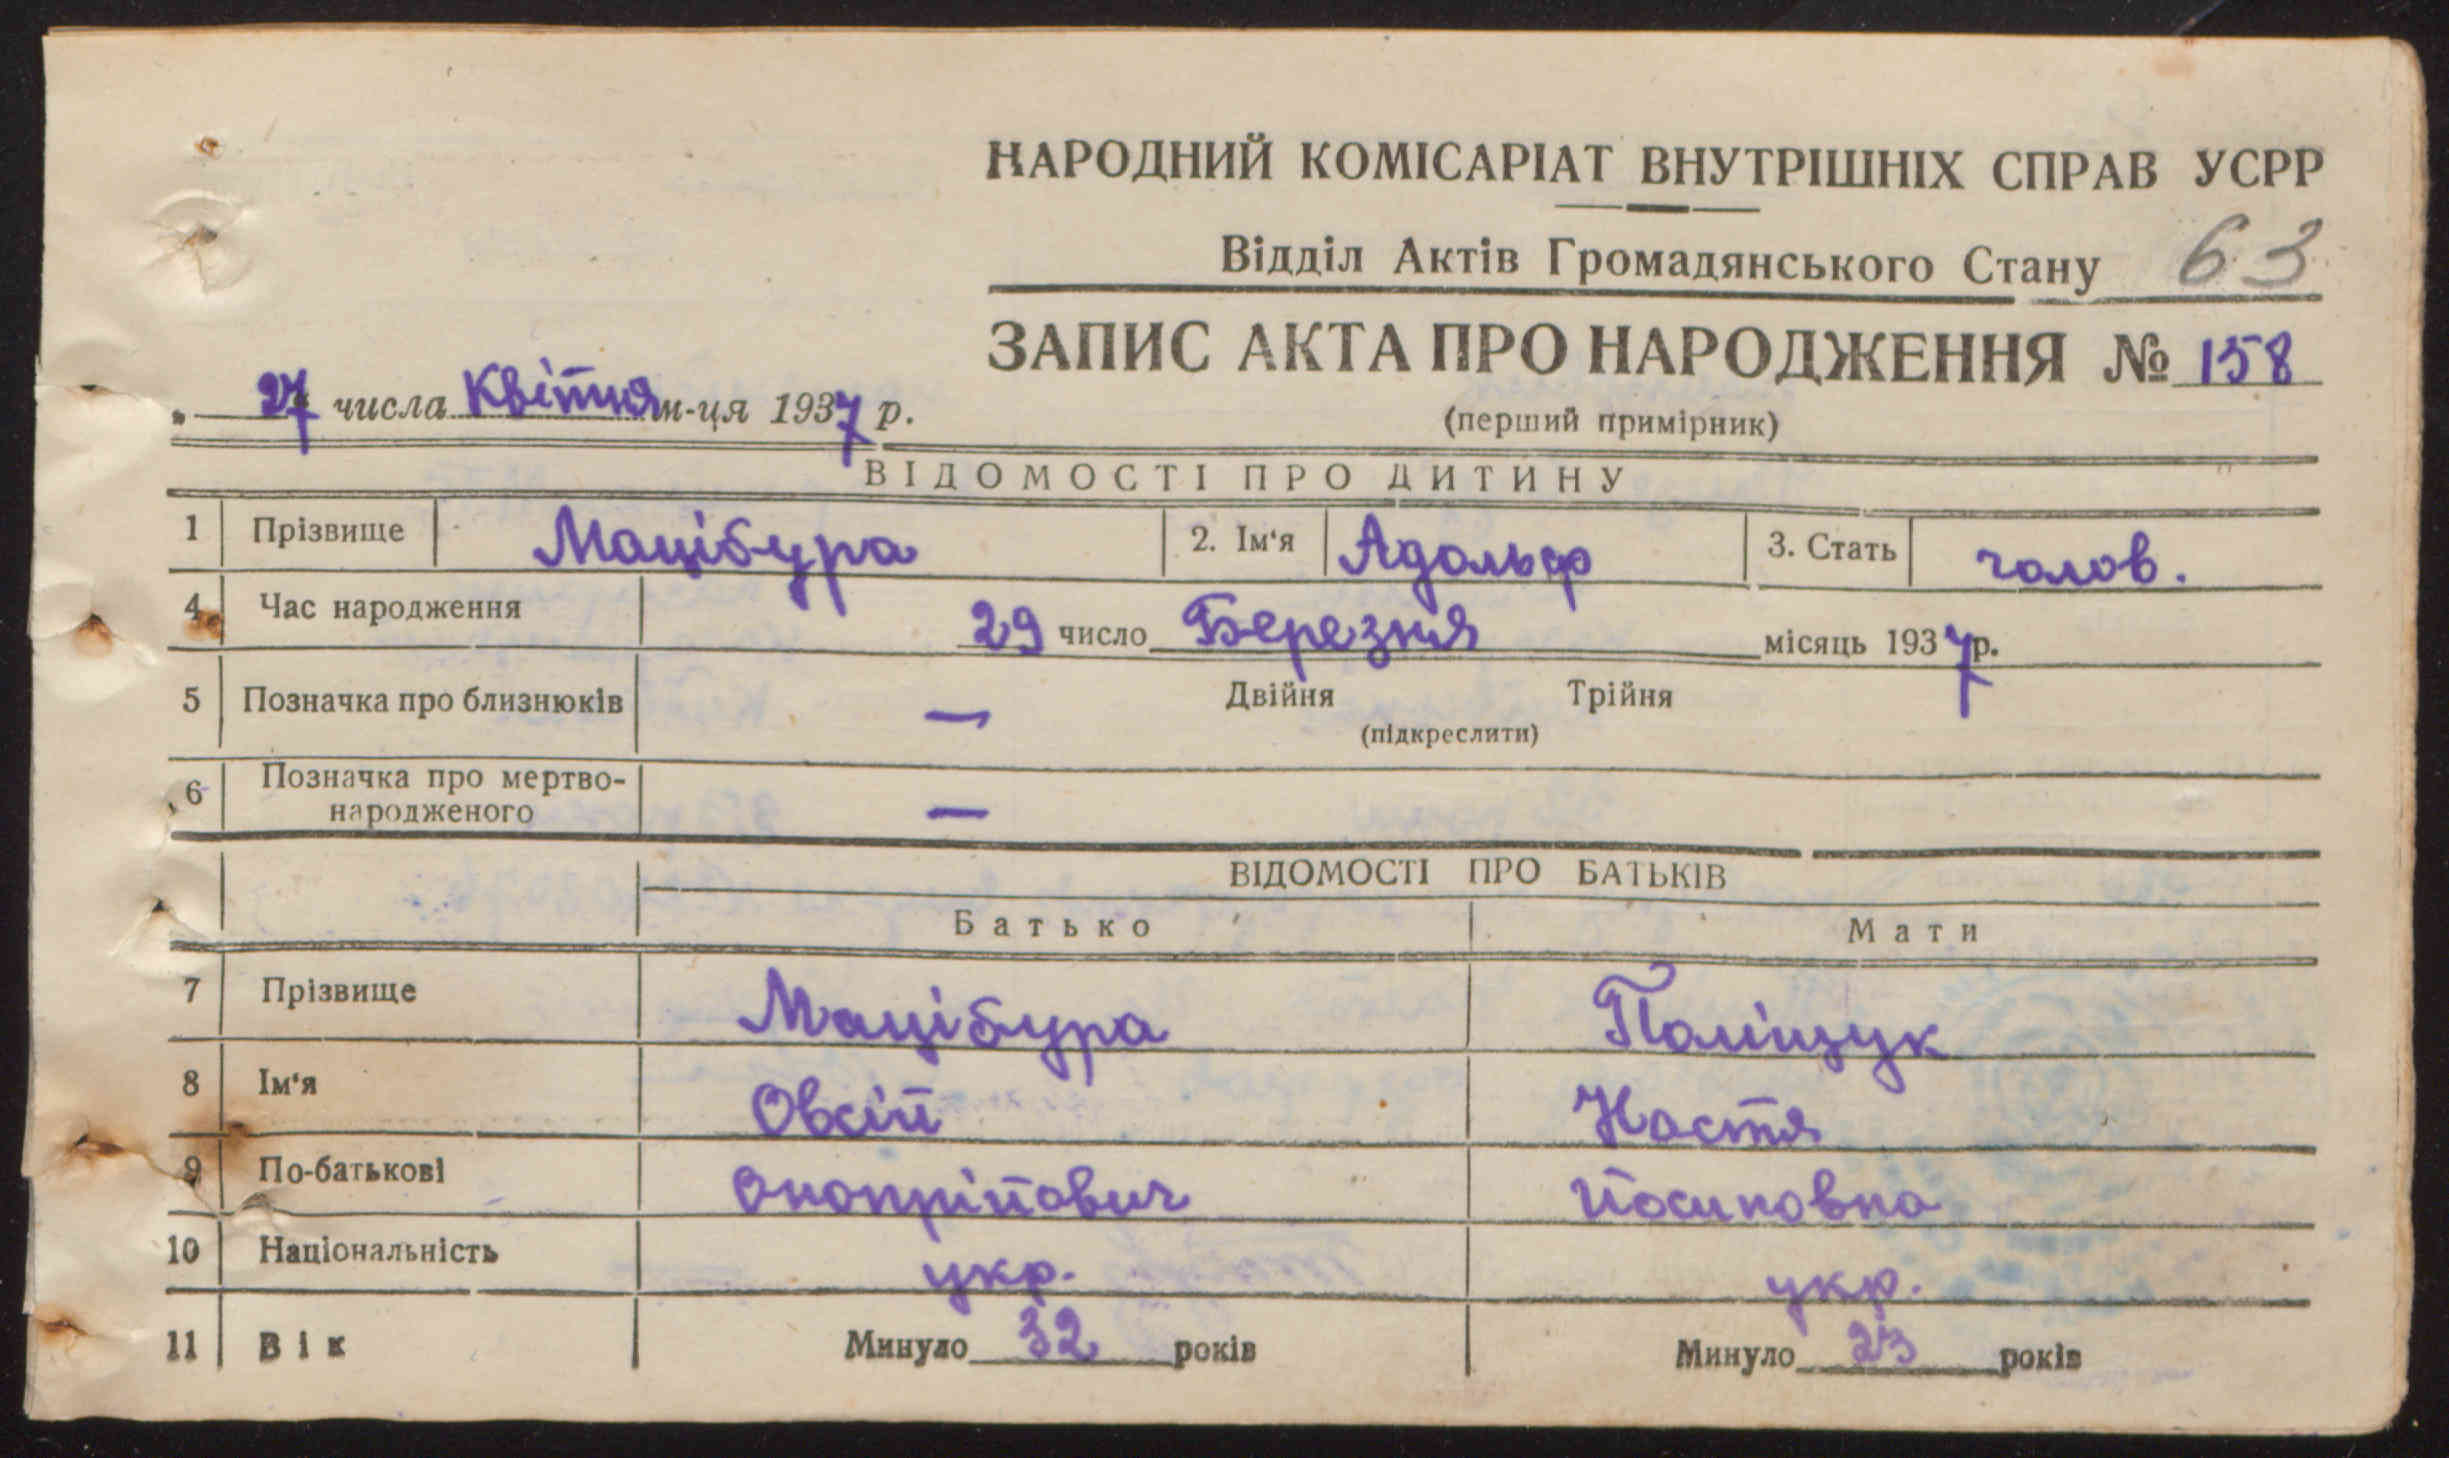 НАРОДНИЙ КОМІСАРІАТ ВНУТРІШНІХ СПРАВ УСРР
Відділ Актів Громадянського Стану 63
ЗАПИС АКТА ПРО НАРОДЖЕННЯ № 158
„ 27 числа Квітня м-ця 1937 р.
(перший примірник)
ВІДОМОСТІ ПРО ДИТИНУ
1 Прізвище Мацібура 2. Ім‘я Адольф 3. Стать чолов.
4 Час народження 29 число Березня місяць 1937 р.
5 Позначка про близнюків — Двійня Трійня
(підкреслити)
6 Позначка про мертво-
народженого —
ВІДОМОСТІ ПРО БАТЬКІВ
Батько Мати
7 Прізвище Мацібура Поліщук
8 Ім‘я Овсій Настя
9 По-батькові Онопрійович Йосиповна
10 Національність укр. укр.
11 Вік Минуло 32 років Минуло 23 років